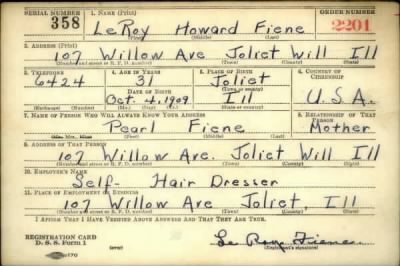 SERIAL NUMBER 1. NAME (Print) ORDER NUMBER
358 LeRoy Howard Fiene 2201
(First) (Middle) (Last)
2. ADDRESS (Print)
107 Willow Ave Joliet Will Ill
(Number and street or R. F. D. number) (Town) (County) (State)
3. TELEPHONE 4. AGE IN YEARS 5. PLACE OF BIRTH 6. COUNTRY OF CITIZENSHIP
6424 31 Joliet
DATE OF BIRTH (Town or county)
Oct. 4, 1909 Ill U.S.A.
(Exchange) (Number) (Mo.) (Day) (Yr.) (State or country)
7. NAME OF PERSON WHO WILL ALWAYS KNOW YOUR ADDRESS 8. RELATIONSHIP OF THAT PERSON
Pearl Fiene Mother
(Mr., Mrs., Miss) (First) (Middle) (Last)
9. ADDRESS OF THAT PERSON
107 Willow Ave. Joliet Will Ill
(Number and street or R. F. D. number) (Town) (County) (State)
10. EMPLOYER'S NAME
Self- Hair Dresser
11. PLACE OF EMPLOYMENT OR BUSINESS
107 Willow Ave Joliet, Ill
(Number and street or R. F. D. number) (Town) (County) (State)
I AFFIRM THAT I HAVE VERIFIED ABOVE ANSWERS AND THAT THEY ARE TRUE.
REGISTRATION CARD
D. S. S. Form 1 (over) Le Roy Fiene
(Registrant's signature)